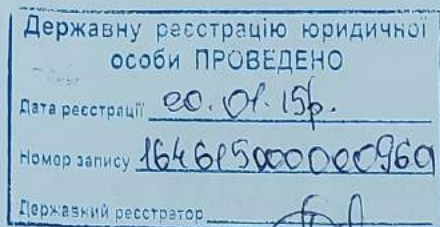 Державну реєстрацію юридичної
особи ПРОВЕДЕНО
Дата реєстрації 20.01.15р.
Номер запису 16461500000000960
Державний реєстратор